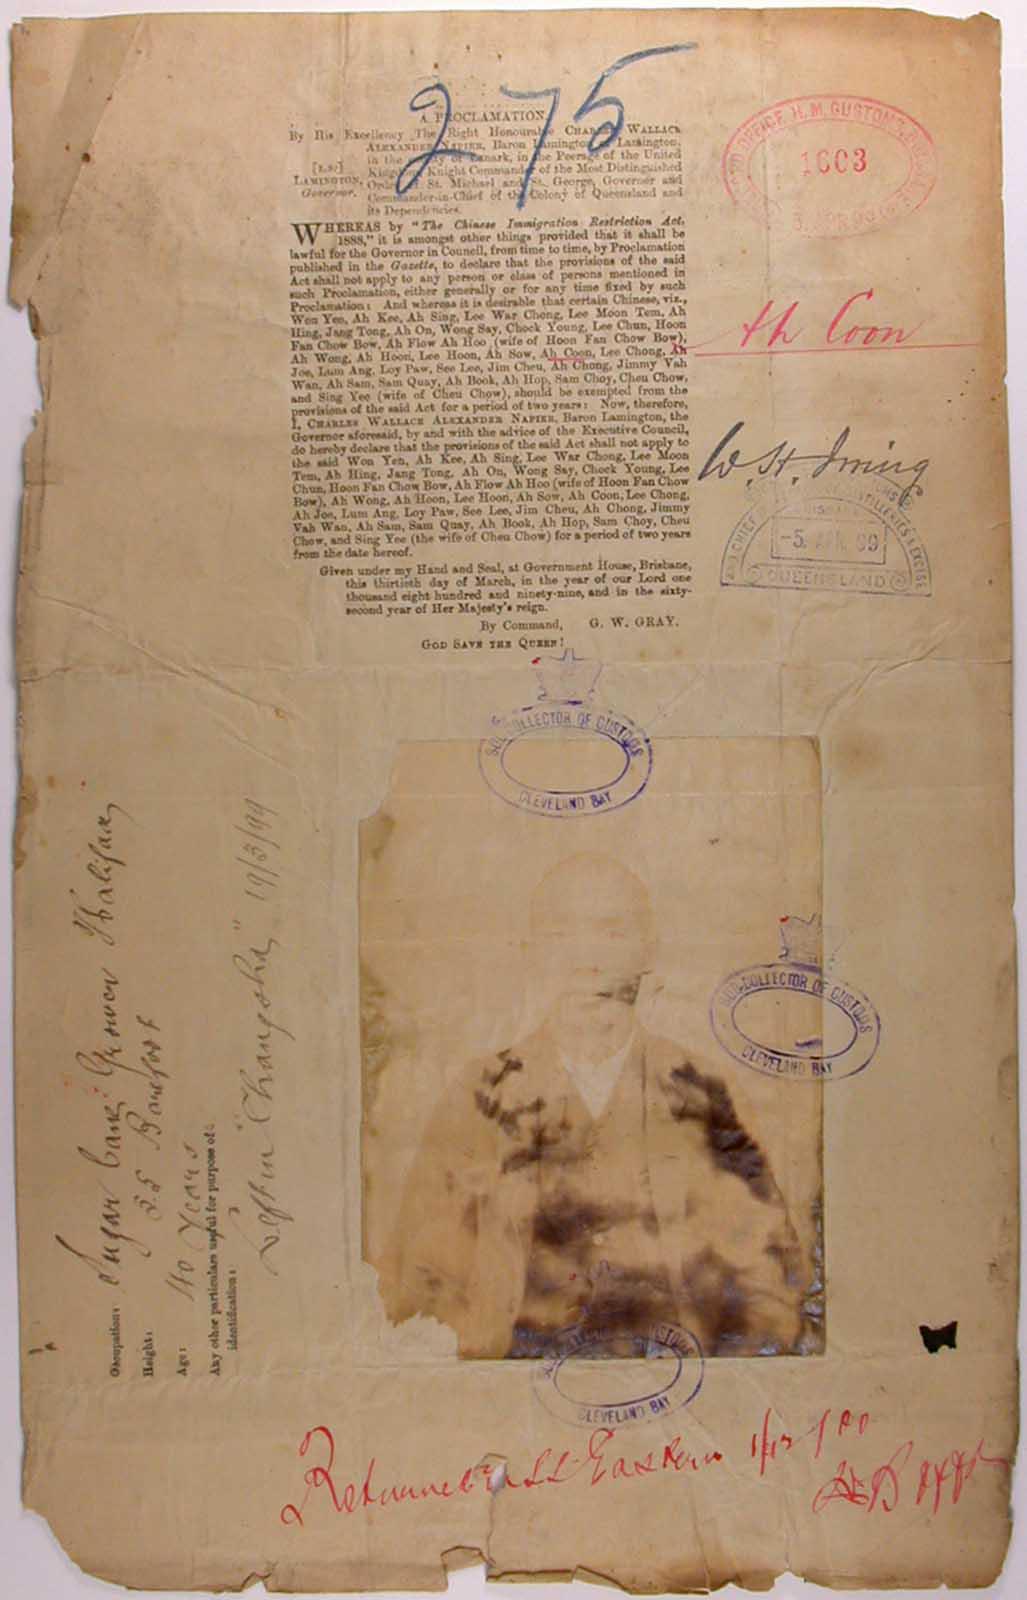 275
A PROCLAMATION.
By His Excellency The Right Honourable CHARLES WALLACE
ALEXANDER NAPIER, Baron Lamington, of Lamington,
in the county of Lanark, in the Peerage of the United
[L.S.] Kingdom, Knight Commander of the Most Distinguished
LAMINGTON, Order of St. Michael and St. George, Governor and
Governor. Commander-in-Chief of the Colony of Queensland and
its Dependencies.
WHEREAS by "The Chinese Immigration Restriction Act,
1888," it is amongst other things provided that it shall be
lawful for the Governor in Council, from time to time, by Proclamation
published in the Gazette, to declare that the provisions of the said
Act shall not apply to any person or class of persons mentioned in
such Proclamation, either generally or for any time fixed by such
Proclamation: And whereas it is desirable that certain Chinese, viz.,
Won Yen, Ah Kee, Ah Sing, Lee War Chong, Lee Moon Tem, Ah
Hing, Jang Tong, Ah On, Wong Say, Chock Young, Lee Chun, Hoon
Fan Chow Bow, Ah Flow Ah Hoo (wife of Hoon Fan Chow Bow),
Ah Wong, Ah Hoon, Lee Hoon, Ah Sow, Ah Coon, Lee Chong, Ah
Joe, Lum Ang, Loy Paw, See Lee, Jim Cheu, Ah Chong, Jimmy Vah
Wan, Ah Sam, Sam Quay, Ah Book, Ah Hop, Sam Choy, Cheu Chow,
and Sing Yee (wife of Cheu Chow), should be exempted from the
provisions of the said Act for a period of two years: Now, therefore,
I, CHARLES WALLACE ALEXANDER NAPIER, Baron Lamington, the
Governor aforesaid, by and with the advice of the Executive Council,
do hereby declare that the provisions of the said Act shall not apply to
the said Won Yen, Ah Kee, Ah Sing, Lee War Chong, Lee Moon
Tem, Ah Hing, Jang Tong, Ah On, Wong Say, Chock Young, Lee
Chun, Hoon Fan Chow Bow, Ah Flow Ah Hoo (wife of Hoon Fan Chow
Bow), Ah Wong, Ah Hoon, Lee Hoon, Ah Sow, Ah Coon, Lee Chong,
Ah Joe, Lum Ang, Loy Paw, See Lee, Jim Cheu, Ah Chong, Jimmy
Vah Wan, Ah Sam, Sam Quay, Ah Book, Ah Hop, Sam Choy, Cheu
Chow, and Sing Yee (the wife of Cheu Chow) for a period of two years
from the date hereof.
Given under my Hand and Seal, at Government House, Brisbane,
this thirtieth day of March, in the year of our Lord one
thousand eight hundred and ninety-nine, and in the sixty-
second year of Her Majesty's reign.
By Command, G. W. GRAY.
GOD SAVE THE QUEEN!
OFFICE H.M. CUSTOMS
1603
Ah Coon
W. H. Irving
DISTILLERIES & EXCISE
-5. APR. 99
QUEENSLAND
SUB-COLLECTOR OF CUSTOMS
CLEVELAND BAY
SUB-COLLECTOR OF CUSTOMS
CLEVELAND BAY
CUSTOMS
CLEVELAND BAY
Occupation: Sugar Cane Grower Halifax
Height: 5.5 Barefoot
Age: 40 Years
Any other particulars useful for purpose of
identification:
Left in "Changsha"
Returned in SS Eastern